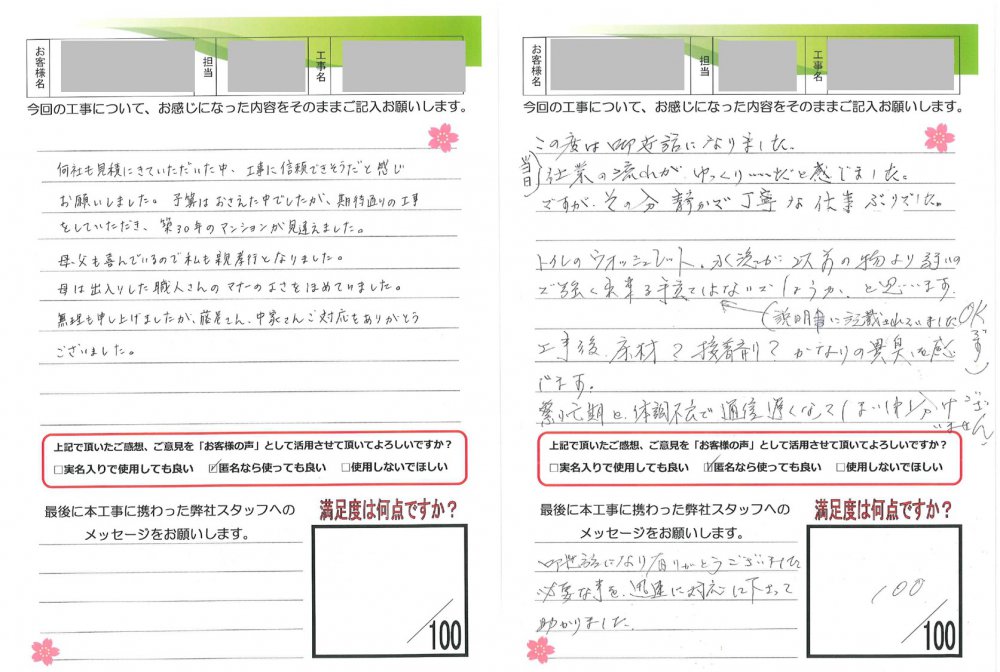 お客様名
担当
工事名
今回の工事について、お感じになった内容をそのままご記入お願いします。
何社も見積にきていただいた中、工事に信頼できそうだと感じ
お願いしました。予算はおさえた中でしたが、期待通りの工事
をしていただき、築30年のマンションが見違えました。
母、父も喜んでいるので私も親孝行となりました。
母は出入りした職人さんのマナーのよさをほめていました。
無理も申し上げましたが、藤邑さん、中家さんご対応ありがとう
ございました。
上記で頂いたご感想、ご意見を「お客様の声」として活用させて頂いてよろしいですか？
□実名入りで使用しても良い ☑匿名なら使っても良い □使用しないでほしい
最後に本工事に携わった弊社スタッフへの
メッセージをお願いします。
満足度は何点ですか？
/100
お客様名
担当
工事名
今回の工事について、お感じになった内容をそのままご記入お願いします。
この度は御世話になりました。
当日
作業の流れがゆっくり……だと感じました。
ですが、その分静かで丁寧な仕事ぶりでした。
トイレのウォッシュレット、水流が以前の物より弱いの
で強く出来る手立てはないでしょうか、と思います。
(説明書に記載されていました OKです)
工事後、床材？接着剤？かなりの異臭を感
じます。
繁忙期と、体調不良で通信遅くなってしまい申し分けございません
上記で頂いたご感想、ご意見を「お客様の声」として活用させて頂いてよろしいですか？
□実名入りで使用しても良い ☑匿名なら使っても良い □使用しないでほしい
最後に本工事に携わった弊社スタッフへの
メッセージをお願いします。
御世話になり有りがとうございました
必要な事を、迅速に対応して下さって
助かりました。
満足度は何点ですか？
100
/100